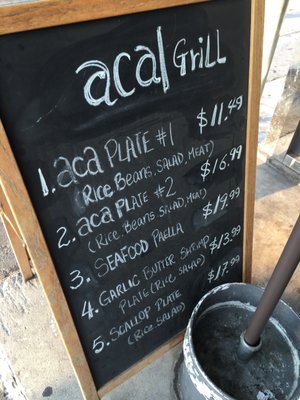 acá| GRILL
1. acá PLATE #1 $11.49
(RICE, BEANS, SALAD, MEAT)
2. acá PLATE #2 $16.99
(RICE, BEANS, SALAD, MEAT)
3. SEAFOOD PAELLA $19.99
4. GARLIC BUTTER SHRIMP $13.99
PLATE (RICE, SALAD)
5. SCALLOP PLATE $17.99
(RICE, SALAD)